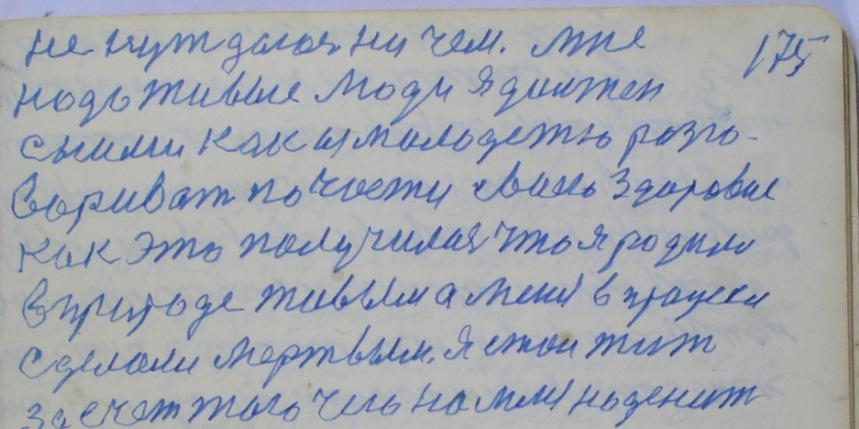 не нуждался ни чем. мне 175
надо живые люди я должен
с ними как и молодежью разго-
вариват по части своего здоровие
как это получился что я родился
в природе живым а меня в процесси
сделали мертвым. я стал жит
за счет того чего на меня наденит